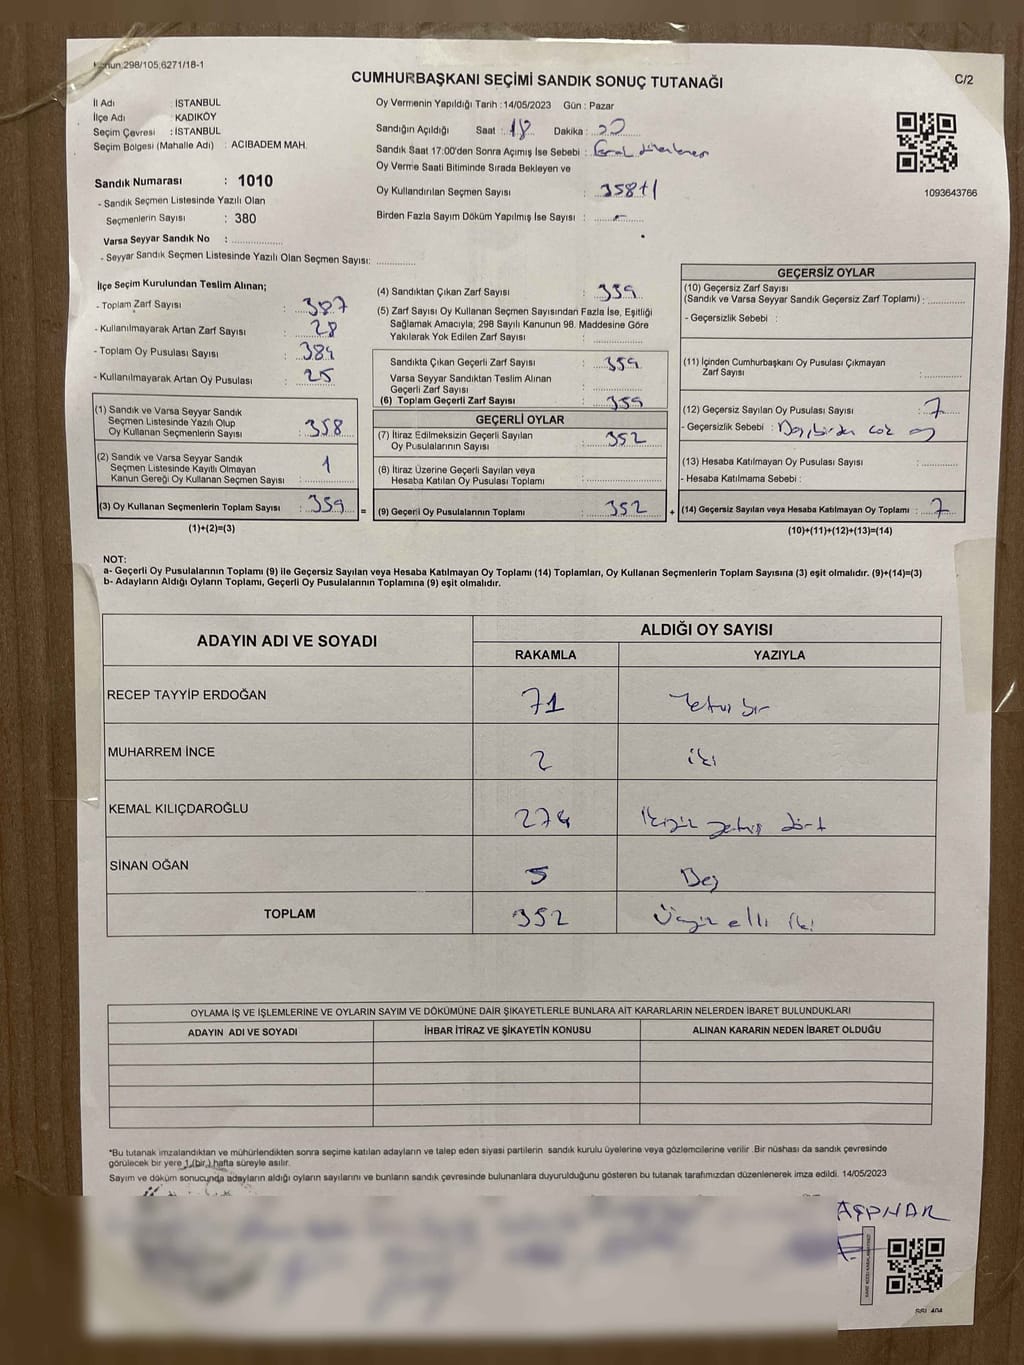 Kanun.298/105,6271/18-1
CUMHURBAŞKANI SEÇİMİ SANDIK SONUÇ TUTANAĞI
C/2
İl Adı : İSTANBUL
İlçe Adı : KADIKÖY
Seçim Çevresi : İSTANBUL
Seçim Bölgesi (Mahalle Adı) : ACIBADEM MAH.
Sandık Numarası : 1010
- Sandık Seçmen Listesinde Yazılı Olan
Seçmenlerin Sayısı : 380
Varsa Seyyar Sandık No :
- Seyyar Sandık Seçmen Listesinde Yazılı Olan Seçmen Sayısı:
Oy Vermenin Yapıldığı Tarih : 14/05/2023 Gün : Pazar
Sandığın Açıldığı Saat : 18 Dakika :
Sandık Saat 17:00'den Sonra Açımış İse Sebebi :
Oy Verme Saati Bitiminde Sırada Bekleyen ve
Oy Kullandırılan Seçmen Sayısı : 358+1
Birden Fazla Sayım Döküm Yapılmış İse Sayısı : -
1093643766
İlçe Seçim Kurulundan Teslim Alınan;
- Toplam Zarf Sayısı : 387
- Kullanılmayarak Artan Zarf Sayısı : 28
- Toplam Oy Pusulası Sayısı : 384
- Kullanılmayarak Artan Oy Pusulası : 25
(1) Sandık ve Varsa Seyyar Sandık
Seçmen Listesinde Yazılı Olup
Oy Kullanan Seçmenlerin Sayısı : 358
(2) Sandık ve Varsa Seyyar Sandık
Seçmen Listesinde Kayıtlı Olmayan
Kanun Gereği Oy Kullanan Seçmen Sayısı : 1
(3) Oy Kullanan Seçmenlerin Toplam Sayısı : 359 =
(1)+(2)=(3)
(4) Sandıktan Çıkan Zarf Sayısı : 359
(5) Zarf Sayısı Oy Kullanan Seçmen Sayısından Fazla İse, Eşitliği
Sağlamak Amacıyla; 298 Sayılı Kanunun 98. Maddesine Göre
Yakılarak Yok Edilen Zarf Sayısı :
Sandıkta Çıkan Geçerli Zarf Sayısı : 359
Varsa Seyyar Sandıktan Teslim Alınan
Geçerli Zarf Sayısı :
(6) Toplam Geçerli Zarf Sayısı : 359
GEÇERLİ OYLAR
(7) İtiraz Edilmeksizin Geçerli Sayılan
Oy Pusulalarının Sayısı : 352
(8) İtiraz Üzerine Geçerli Sayılan veya
Hesaba Katılan Oy Pusulası Toplamı :
(9) Geçerli Oy Pusulalarının Toplamı : 352 +
GEÇERSİZ OYLAR
(10) Geçersiz Zarf Sayısı
(Sandık ve Varsa Seyyar Sandık Geçersiz Zarf Toplamı) :
- Geçersizlik Sebebi :
(11) İçinden Cumhurbaşkanı Oy Pusulası Çıkmayan
Zarf Sayısı :
(12) Geçersiz Sayılan Oy Pusulası Sayısı : 7
- Geçersizlik Sebebi : çok oy
(13) Hesaba Katılmayan Oy Pusulası Sayısı :
- Hesaba Katılmama Sebebi :
(14) Geçersiz Sayılan veya Hesaba Katılmayan Oy Toplamı : 7
(10)+(11)+(12)+(13)=(14)
NOT:
a- Geçerli Oy Pusulalarının Toplamı (9) ile Geçersiz Sayılan veya Hesaba Katılmayan Oy Toplamı (14) Toplamları, Oy Kullanan Seçmenlerin Toplam Sayısına (3) eşit olmalıdır. (9)+(14)=(3)
b- Adayların Aldığı Oyların Toplamı, Geçerli Oy Pusulalarının Toplamına (9) eşit olmalıdır.
ADAYIN ADI VE SOYADI
ALDIĞI OY SAYISI
RAKAMLA YAZIYLA
RECEP TAYYİP ERDOĞAN 71 Yetmiş bir
MUHARREM İNCE 2 iki
KEMAL KILIÇDAROĞLU 274 İkiyüz yetmiş dört
SİNAN OĞAN 5 Beş
TOPLAM 352 Üçyüz elli iki
OYLAMA İŞ VE İŞLEMLERİNE VE OYLARIN SAYIM VE DÖKÜMÜNE DAİR ŞİKAYETLERLE BUNLARA AİT KARARLARIN NELERDEN İBARET BULUNDUKLARI
ADAYIN ADI VE SOYADI İHBAR İTİRAZ VE ŞİKAYETİN KONUSU ALINAN KARARIN NEDEN İBARET OLDUĞU
*Bu tutanak imzalandıktan ve mühürlendikten sonra seçime katılan adayların ve talep eden siyasi partilerin sandık kurulu üyelerine veya gözlemcilerine verilir .Bir nüshası da sandık çevresinde
görülecek bir yere 1 (bir ) hafta süreyle asılır.
Sayım ve döküm sonucunda adayların aldığı oyların sayılarını ve bunların sandık çevresinde bulunanlara duyurulduğunu gösteren bu tutanak tarafımızdan düzenlenerek imza edildi. 14/05/2023